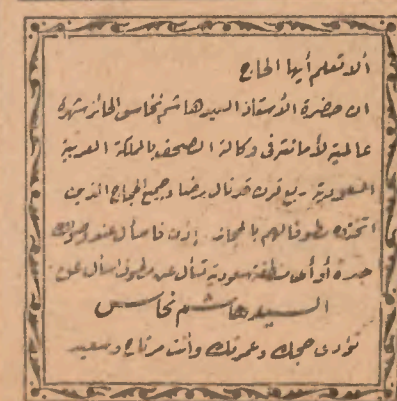 ألا تعلم أيها الحاج
ان حضرة الأستاذ السيد هاشم نحاس الحائز شهرة
عالمية لأمانته فى وكالة الصحف بالمملكة العربية
السعودية ربع قرن قد نال رضا جميع الحجاج الذين
اتخذوه مطوفا لهم بالحجاز. إذن فاسأل عند وصولك
جدة أو أى منطقة سعودية تسأل عن مطوفك اسأل عن
السيد هاشم نحاس
تؤدى حجك وعمرتك وأنت مرتاح وسعيد